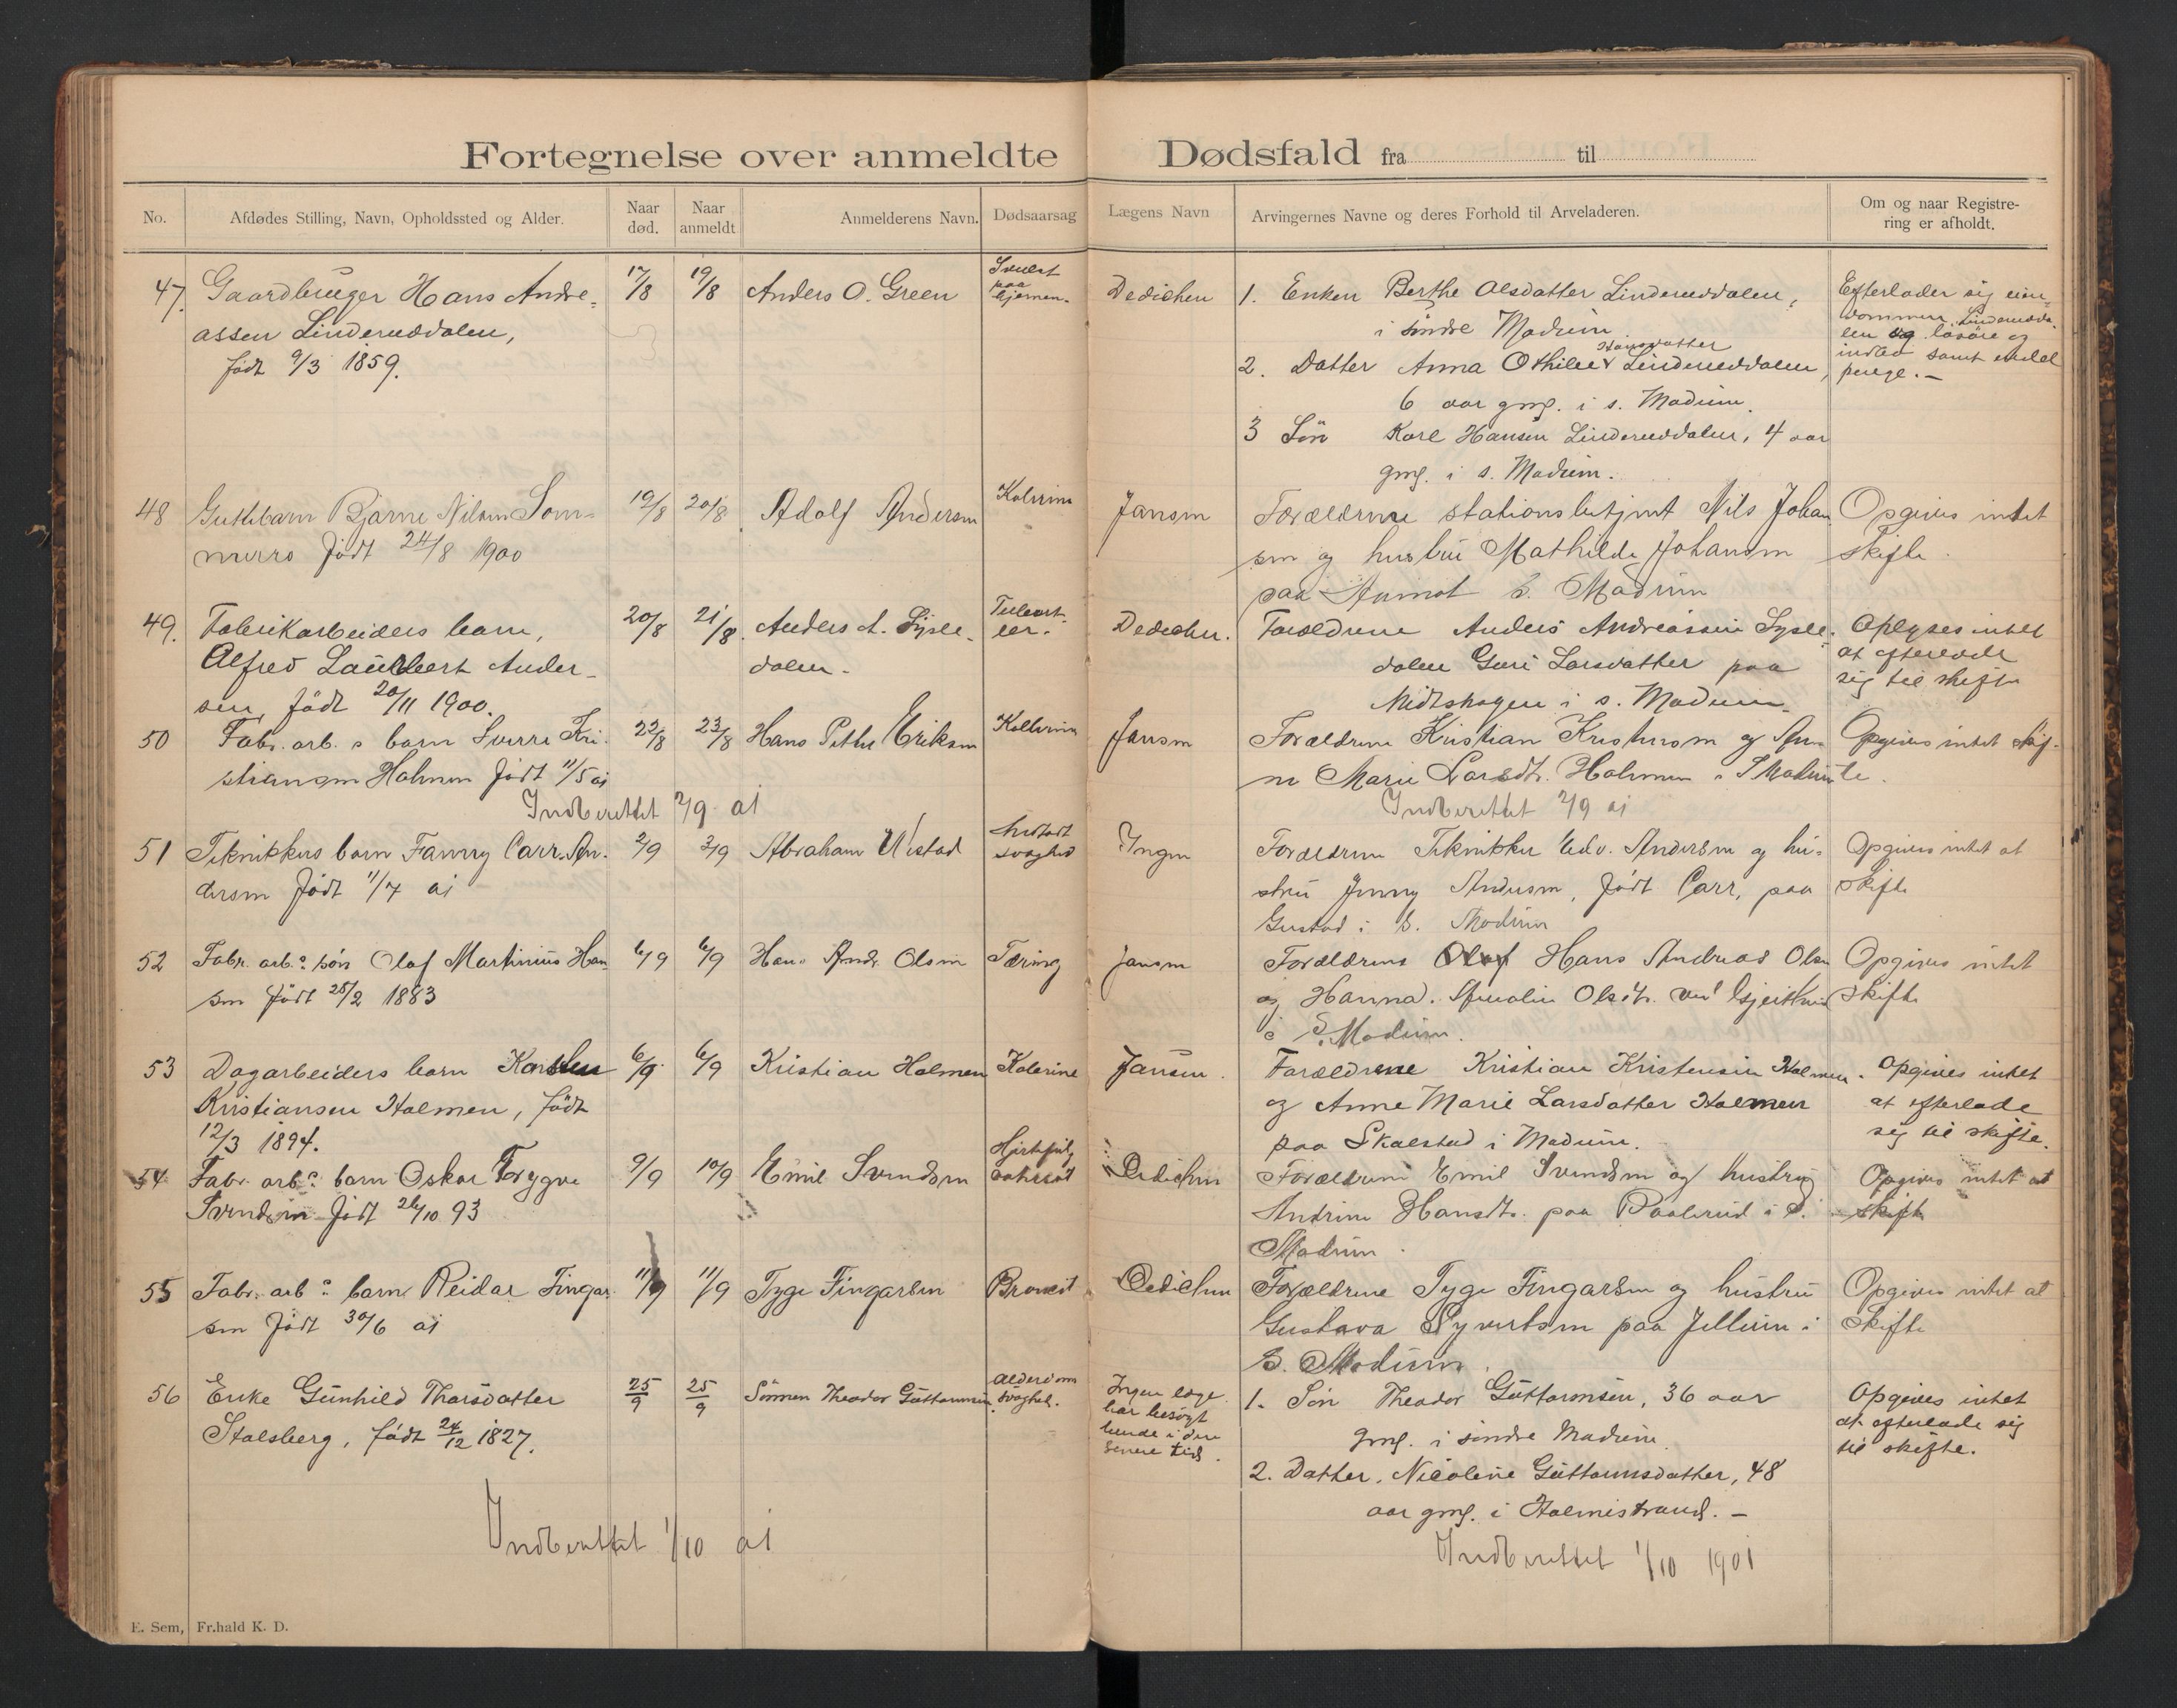 Fortegnelse over anmeldte Dødsfald fra til
No. Afdødes Stilling, Navn, Opholdssted og Alder. Naar død. Naar anmeldt Anmelderens Navn. Dødsaarsag Lægens Navn Arvingernes Navne og deres Forhold til Arveladeren. Om og naar Registrering er afholdt.
47. Gaardbruger Hans Andre- 17/8 19/8 Anders O. Green Svulst paa hjernen. Dedichen 1. Enken Berthe Olsdatter Linderuddalen,
assen Linderuddalen, i søndre Modum
født 9/3 1859. 2. Datter Anna Othilie Hansdatter Linderuddalen,
6 aar gml. i s. Modum.
3 Søn Karl Hansen Linderuddalen, 4 aar
gml. i s. Modum.
Efterlader sig eien-
dommen Linderudda-
len og løsøre og
indbo samt endel
penge. —
48 Guttebarn Bjarne Nilsen Som- 19/8 20/8 Adolf Andersen Kolerine Jansen Forældrene stationsbetjent Nils Johan Opgives intet
merro født 24/8 1900 sen og hustru Mathilde Johansen skifte.
paa Aamot s. Modum
49. Fabrikarbeiders barn, 20/8 21/8 Anders A. Sysle- Dedichen. Forældrene Anders Andreassen Sysle- Oplyses intet
Alfred Lauribert Ander- dalen. dalen Guri Larsdatter paa at efterlade
sen, født 20/11 1900. Midtskogen i s. Modum. sig til skifte
50 Fabr. arb. s barn Sverre Kri- 22/8 23/8 Hans Petter Eriksen Kollerine Jansen Forældrene Kristian Kristensen og An- Opgives intet skif-
stiansen Holmen født 11/5 01 ne Marie Larsdtr. Holmen i S Modum te.
Indberettet 2/9 01 Indberettet 2/9 01
51 Teknikkers barn Fanny Carr. An- 2/9 3/9 Abraham Ulstad svaghed Ingen Forældrene Tekniker Edv. Andersen og hu- Opgives intet at
dersen født 11/7 01 stru Jenny Andersen, født Carr, paa skifte
Gustad i S. Modum
52 Fabr. arb.s søn Olaf Martinius Han 6/9 6/9 Hans Andr. Olsen Tæring Jansen Forældrene Hans Andreas Olsen Opgives intet
sen født 25/2 1883 og Hanna Olsdtr. ved Gjeithus skifte
i S. Modum.
53 Dagarbeiders barn Karsten 6/9 6/9 Kristian Holmen Kolerine Jansen. Forældrene Kristian Kristensen Holmen. Opgives intet
Kristiansen Holmen, født og Anne Marie Larsdatter Holmen at efterlade
12/3 1894. paa Skalstad i Modum. sig til skifte.
54 Fabr. arb.s barn Oskar Trygve 9/9 10/9 Emil Svendsen Dedichen Forældrene Emil Svendsen og hustru Opgives intet at
Svendsen født 26/10 93 Andrine Hansdtr. paa Paalerud i S. skifte
Modum.
55 Fabr. arb s barn Reidar Fingar 11/9 11/9 Tyge Fingarsen Bronkit Dedichen Forældrene Tyge Fingarsen og hustru Opgives intet at
sen født 30/6 01 Gustava Syvertsen paa Jellum i Skifte
S. Modum.
56 Enke Gunhild Thorsdatter 25/9 25/9 Sønnen Theodor Guttormsen. Alderdoms svaghed. Ingen læge 1. Søn Theodor Guttormsen, 36 aar Opgives intet
Stalsberg, født 24/12 1827. har besøgt gml. i søndre Modum. at efterlade sig
hende i den 2. Datter, Nicoline Guttormsdatter, 48 til skifte.
senere tid. aar gml. i Holmestrand. —
Indberettet 1/10 01 Indberettet 1/10 1901
E. Sem, Fr.hald K. D.